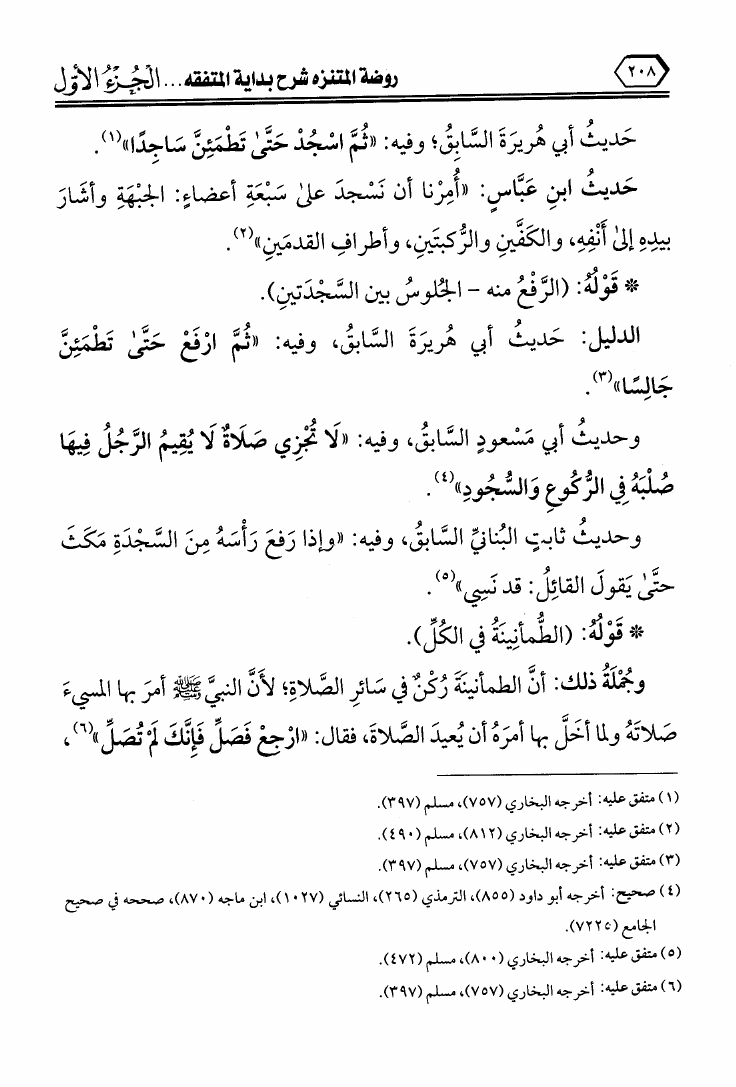 ٢٠٨
روضة المتنزه شرح بداية المتفقه ... الْجُزْءُ الأَوَّل
حَديثُ أبي هُريرَةَ السَّابِقُ؛ وفيه: «ثُمَّ اسْجُدْ حَتَّىٰ تَطْمَئِنَّ سَاجِدًا»(١).
حَديثُ ابنِ عَبَّاسٍ: «أُمِرْنا أن نَسْجدَ علىٰ سَبْعَةِ أعضاءٍ: الجَبْهَةِ وأشَارَ
بيدِهِ إلىٰ أَنْفِهِ، والكَفَّينِ والرُّكبتَينِ، وأطرافِ القدمَينِ»(٢).
* قَوْلُهُ: (الرَّفْعُ منه - الجُلوسُ بين السَّجْدَتينِ).
الدليل: حَديثُ أبي هُريرَةَ السَّابقُ، وفيه: «ثُمَّ ارْفَعْ حَتَّىٰ تَطْمَئِنَّ
جَالِسًا»(٣).
وحديثُ أبي مَسْعودٍ السَّابقُ، وفيه: «لَا تُجْزِي صَلَاةٌ لَا يُقِيمُ الرَّجُلُ فِيهَا
صُلْبَهُ فِي الرُّكُوعِ وَالسُّجُودِ»(٤).
وحديثُ ثابتٍ البُنانيِّ السَّابقُ، وفيه: «وإذا رَفعَ رَأْسَهُ مِنَ السَّجْدَةِ مَكَثَ
حتَّىٰ يَقولَ القائِلُ: قد نَسِي»(٥).
* قَوْلُهُ: (الطُّمأنِينَةُ في الكُلِّ).
وجُمْلَةُ ذلك: أنَّ الطمأنينَةَ رُكْنٌ في سَائرِ الصَّلاةِ؛ لأنَّ النبيَّ ﷺ أمرَ بها المسيءَ
صَلاتَهُ ولما أخَلَّ بها أمرَهُ أن يُعيدَ الصَّلاةَ، فقال: «ارْجِعْ فَصَلِّ فَإِنَّكَ لَمْ تُصَلِّ»(٦)،
(١) متفق عليه: أخرجه البخاري (٧٥٧)، مسلم (٣٩٧).
(٢) متفق عليه: أخرجه البخاري (٨١٢)، مسلم (٤٩٠).
(٣) متفق عليه: أخرجه البخاري (٧٥٧)، مسلم (٣٩٧).
(٤) صحيح: أخرجه أبو داود (٨٥٥)، الترمذي (٢٦٥)، النسائي (١٠٢٧)، ابن ماجه (٨٧٠)، صححه في صحيح
الجامع (٧٢٢٥).
(٥) متفق عليه: أخرجه البخاري (٨٠٠)، مسلم (٤٧٢).
(٦) متفق عليه: أخرجه البخاري (٧٥٧)، مسلم (٣٩٧).